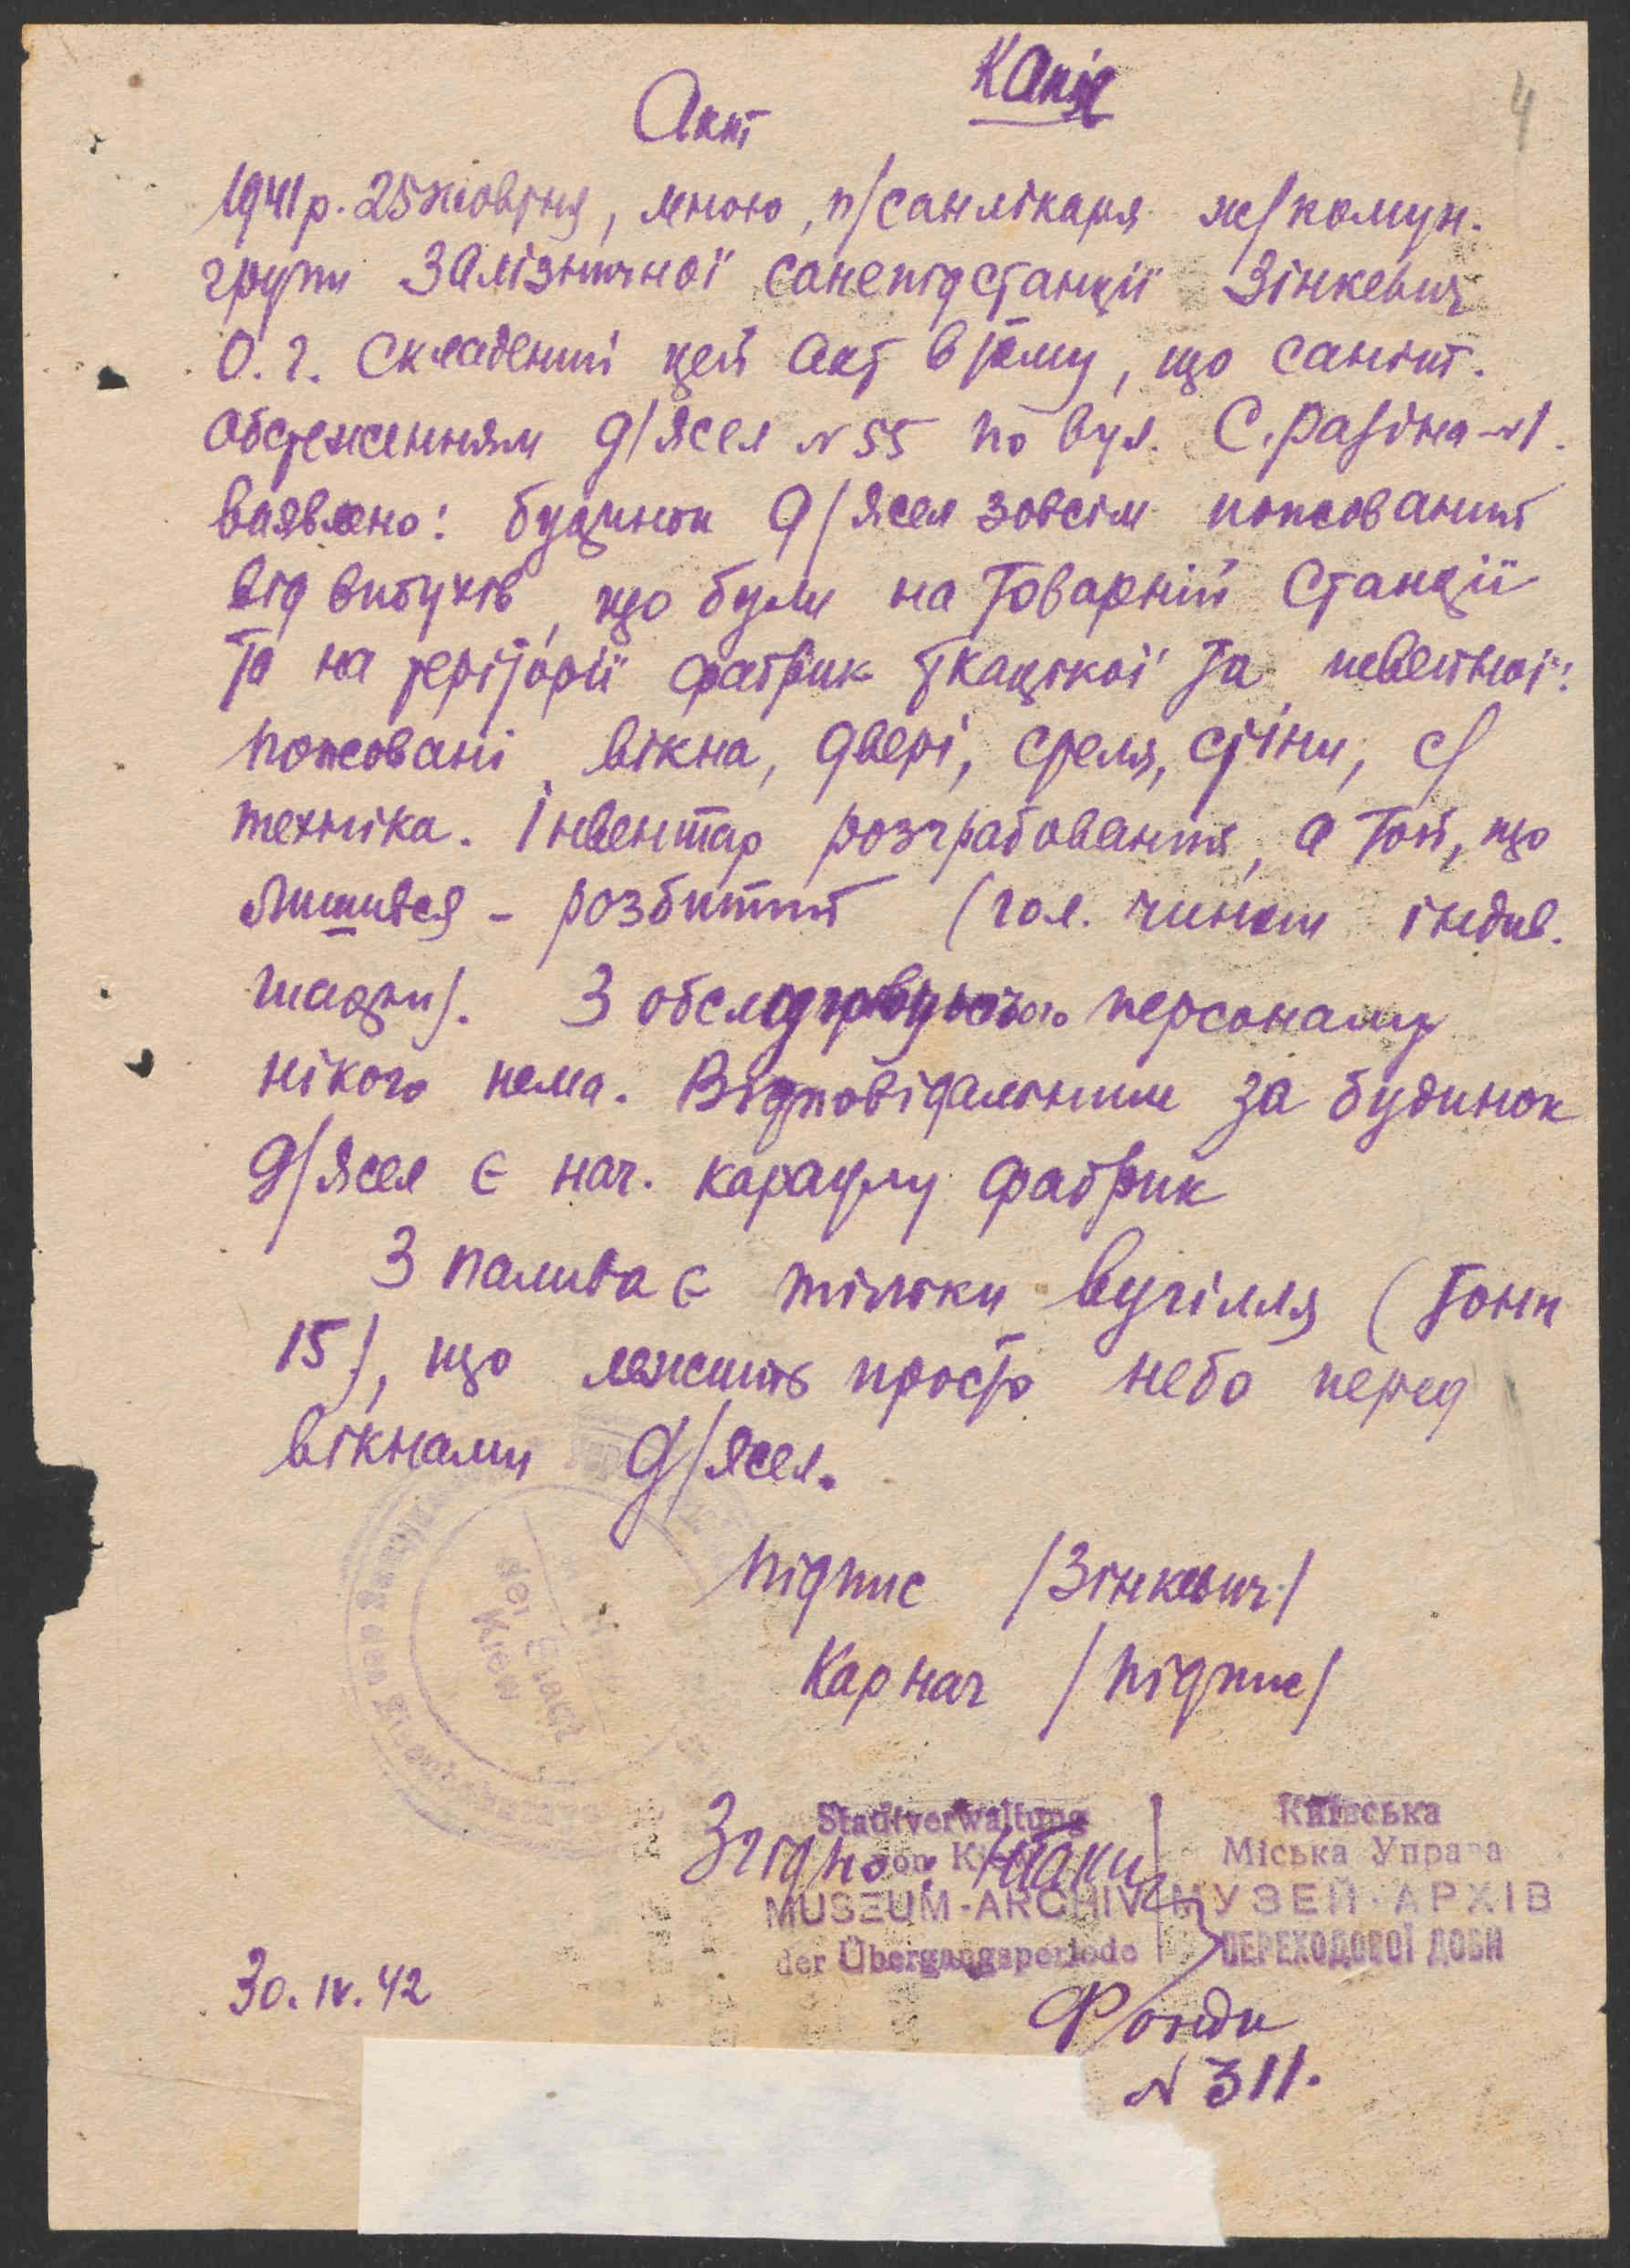 Копія
4
Акт
1941 р. 25 жовтня, мною, п/санлікаря ж/комун.
групи Залізничної санепідстанції Зінкевич
О. Г. складений цей акт в тому, що саніт.
обстеженням д/ясел № 55 по вул. С. Разіна №1.
ваявлено: будинок д/ясел зовсім попсований
від вибухів, що були на Товарній станції
та на теріторії фабрик ткацької та швейної:
попсовані вікна, двері, стеля, стіни, с/
техніка. Інвентар розграбований, а той, що
лишився - розбитий (гол. чином індив.
шафки). З обслуговуючого персоналу
нікого нема. Відповідальним за будинок
д/ясел є нач. караулу фабрик
З палива є тільки вугілля (тонн
15), що лежить просто неба перед
вікнами д/ясел.
підпис /Зінкевич/
Карнач /підпис/
der Stadt
Kiew
Stadtverwaltung
von Kiew
MUSEUM-ARCHIV
der Übergangsperiode
Київська
Міська Управа
МУЗЕЙ-АРХІВ
ПЕРЕХОДОВОЇ ДОБИ
Згідно:
30. IV. 42
Фонди
№ 311.